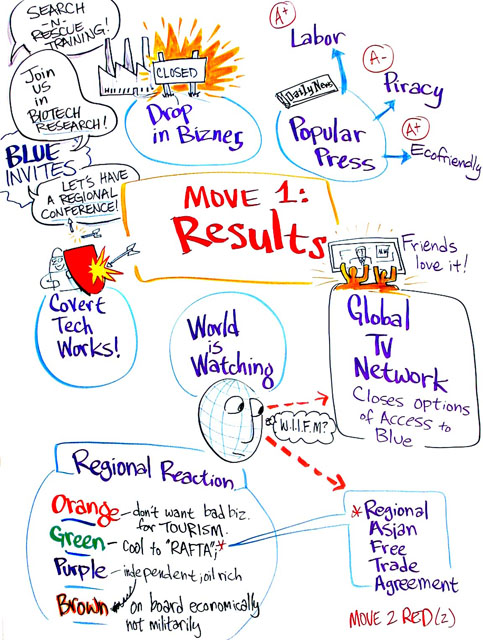 SEARCH
-N-
RESCUE
TRAINING!
Join
us
in
BIOTECH
RESEARCH!
BLUE
INVITES
LET'S HAVE
A REGIONAL
CONFERENCE!
CLOSED
Drop
in Biznes
A+
Labor
A-
Piracy
A+
Ecofriendly
Daily News
Popular
Press
MOVE 1:
Results
Covert
Tech
Works!
World
is
Watching
W.I.I.F.M?
Friends
love it!
Global
TV
Network
Closes Options
of Access to
Blue
Regional Reaction
Orange - don't want bad biz.
for TOURISM.
Green - cool to "RAFTA";*
Purple - independent, oil rich
Brown on board economically
not militarily
*Regional
Asian
Free
Trade
Agreement
MOVE 2 RED (2)